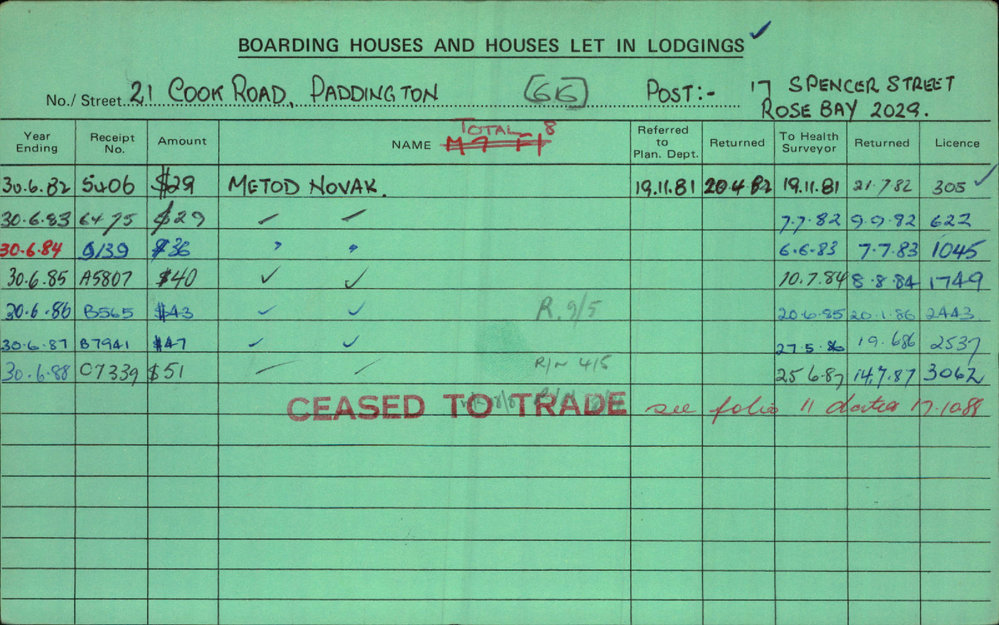 BOARDING HOUSES AND HOUSES LET IN LODGINGS ✓
No./ Street. 21 COOK ROAD, PADDINGTON (66) POST:- 17 SPENCER STREET
ROSE BAY 2029.
Year Ending Receipt No. Amount NAME TOTAL 8 Referred to Plan. Dept. Returned To Health Surveyor Returned Licence
30.6.82 5406 $29 METOD NOVAK. 19.11.81 20.4.82 19.11.81 21.7.82 305 ✓
30.6.83 6475 $29 7.7.82 9.9.82 622
30.6.84 9139 $36 " " 6.6.83 7.7.83 1045
30.6.85 A5807 $40 ✓ ✓ 10.7.84 8.8.84 1749
30.6.86 B565 $43 ✓ ✓ R.9/5 20.6.85 20.1.86 2443
30.6.87 B7941 $47 ✓ ✓ 27.5.86 19.686 2537
30.6.88 C7339 $51 R/N 4/5 25 6.87 14.7.87 3062
CEASED TO TRADE see folio 11 dated 17.10.88